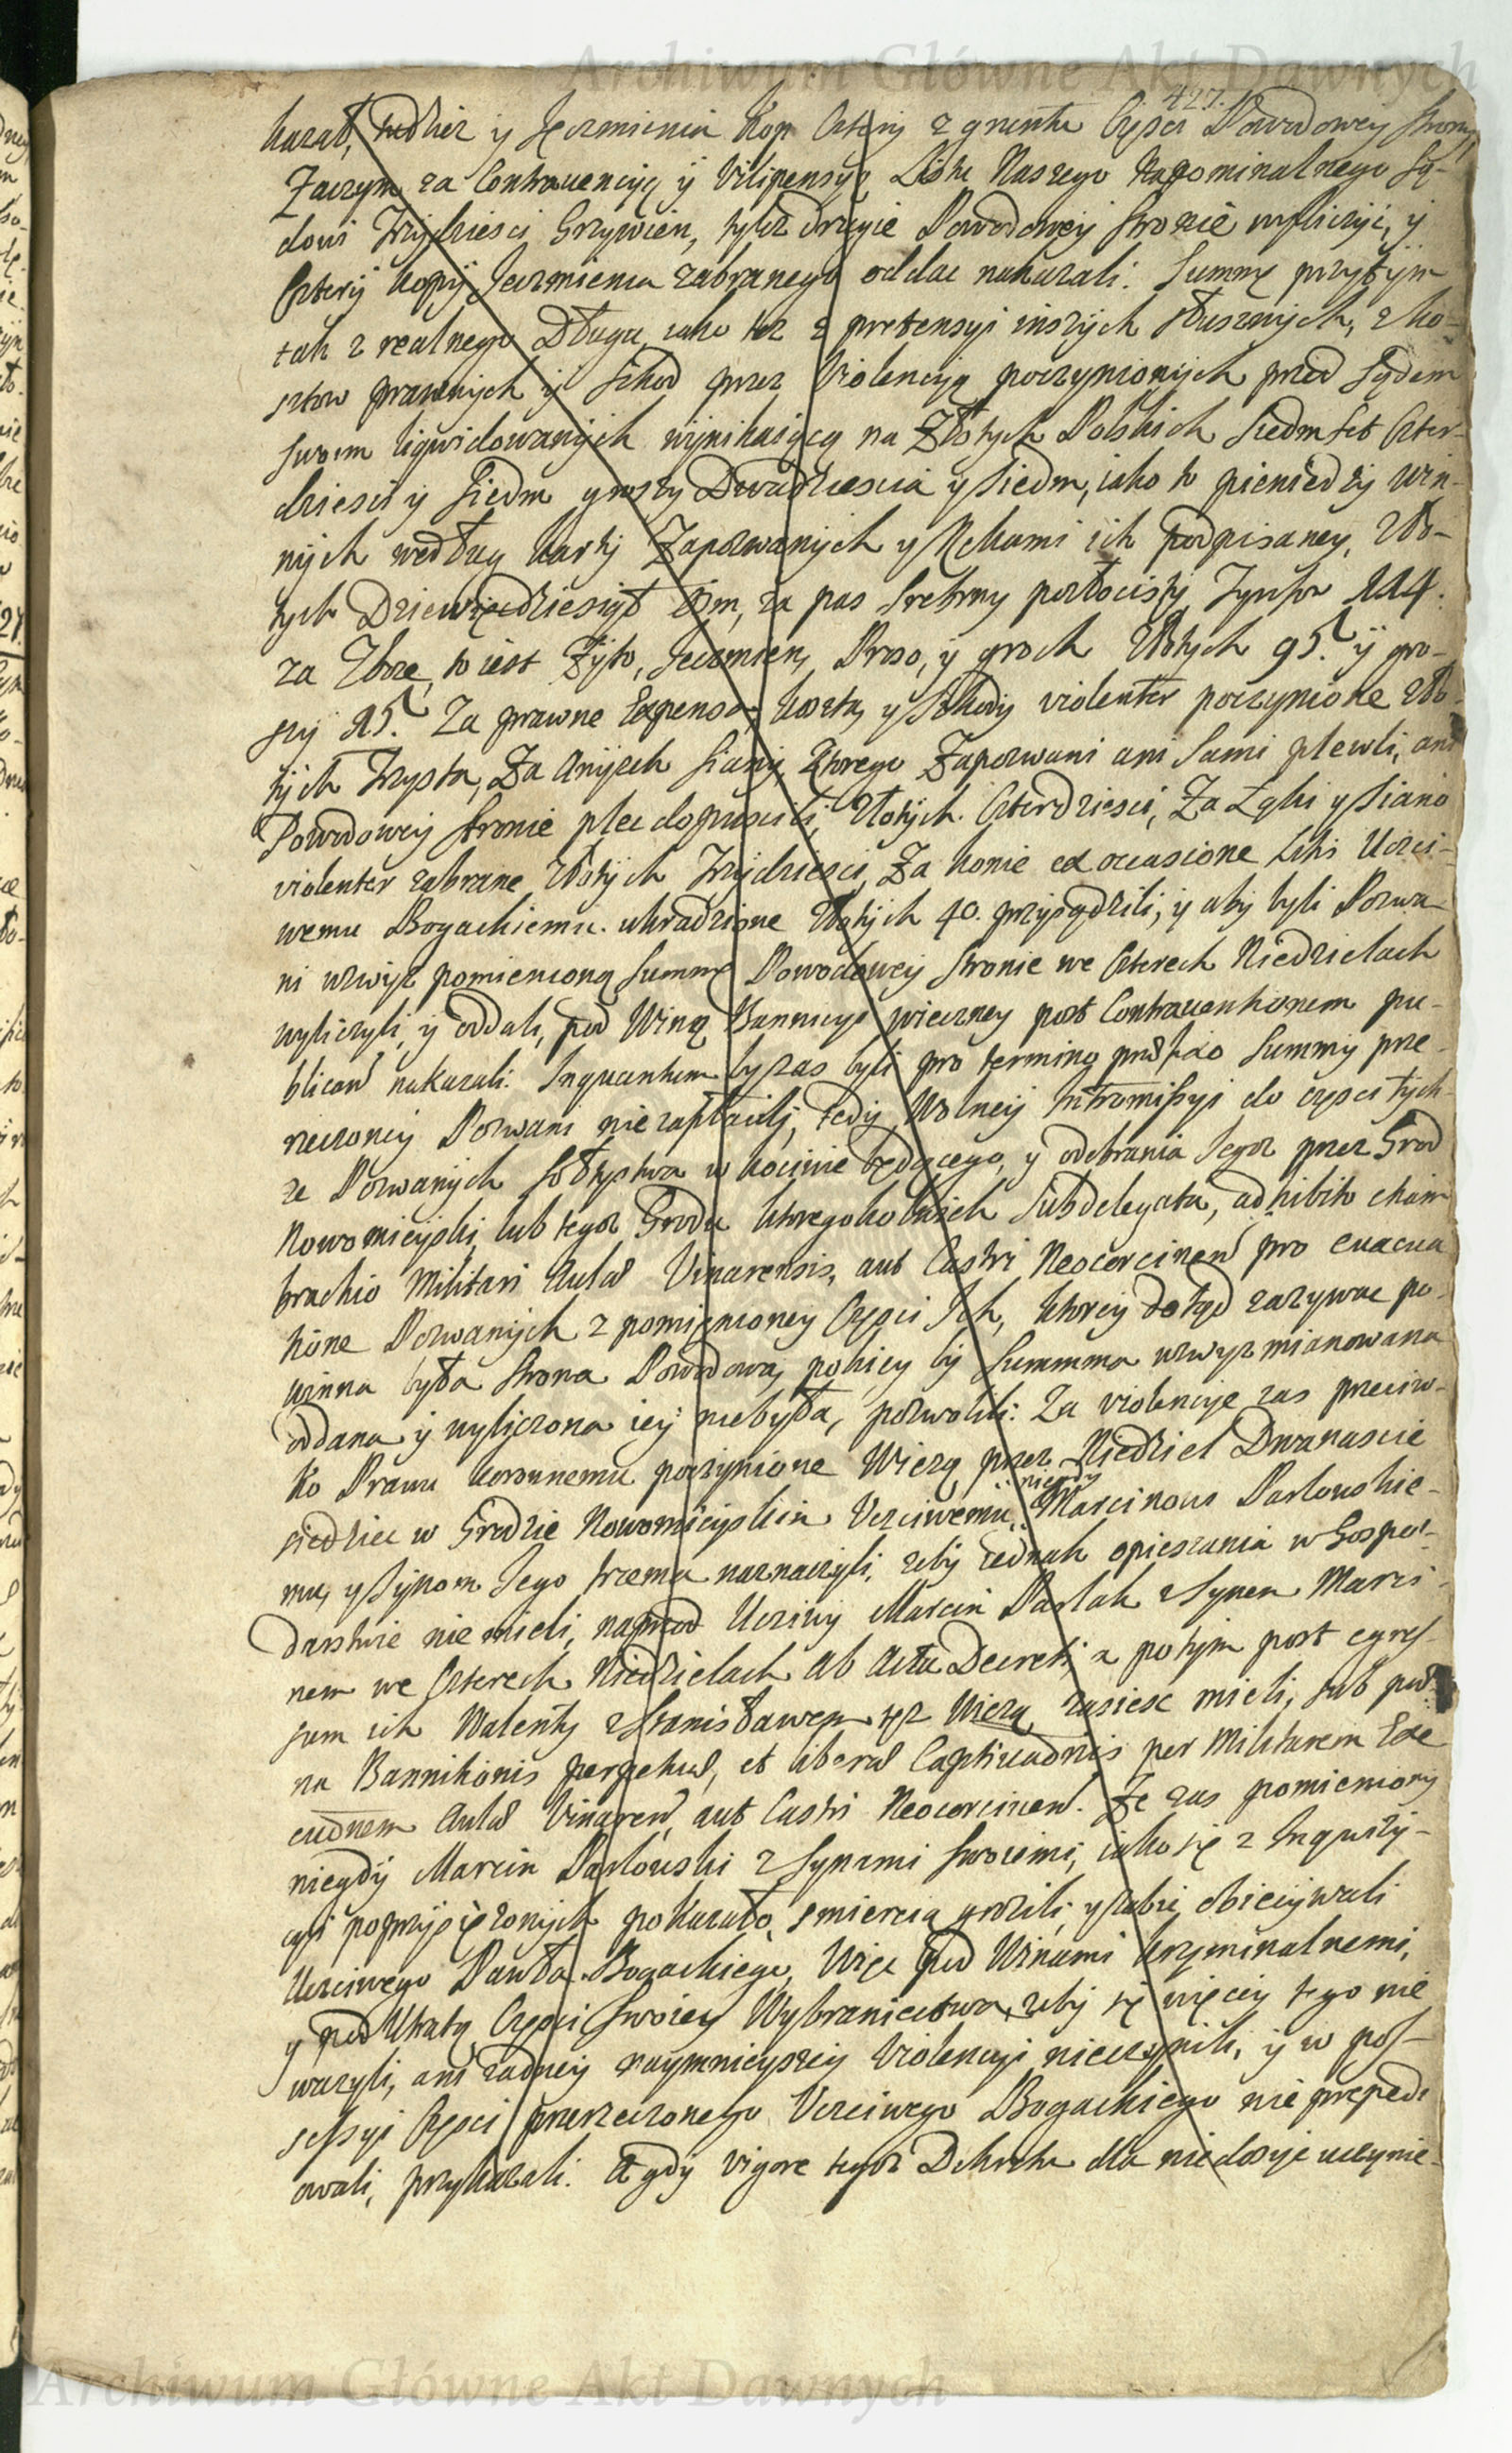 Archiwum Główne Akt Dawnych
427.
kazał, tudziez y Jęczmienia Kop Cztery z gruntu Częsci Powodowey strony,
Zaczym za Contrauencyą y Vilipensyą Listu Naszego Są-
dowi Trzydziesci Grzywien, tylez drugie Powodowey stronie wyliczyc, y
Cztery kopy Jęczmienia zabranego oddac nakazali. Summę przytym
tak z realnego Długu, iako tez z pretensyi inszych słusznych, z ko-
sztow prawnych y szkod przez Violencyą poczynionych przed Sądem
swoim liquidowanych wynikaiącą na Złotych Polskich Siedm set Czter-
dziesci y siedm groszy Dwadziescia y siedm, iako to pieniędzy win-
nych według karty Zapozwanych y Rękami ich podpisaney, Zło-
tych Dziewięcdziesiąt Osm, za pas srebrny pozłocisty Tynfow 114.
za Zboze, to iest Zyto, Jęczmien, Proso, y groch Złotych 95. y gro-
szy 15. Za prawne Expensa, koszta, y szkody violenter poczynione Zło-
tych Trzysta, Za Anyzek siany, ktorego Zapozwani ani sami plewli, ani
Powodowey stronie plec dopuscili, Złotych Czterdziesci, Za Łąki y siano
violenter zabrane Złotych Trzydziesci, Za konie ex occasione Ucści-
wemu Bogackiemu ukradzione Złotych 40. przysądzili, y aby byli Pozwa-
ni wzwyz pomienioną Summę Powodowey stronie we Czterech Niedzielach
wyliczyli, y oddali, pod Winą Bannicyi wieczney post Contrauentionem pu-
blicand nakazali. Inquantum by zas byli pro termino Summy prze-
rzeczoney Pozwani nie zapłacili, tedy Wolney Intromissyi do częsci tych-
ze Pozwanych Sołtystwa w Kocinie będącego, y odebrania Jegoz przez Grod
Nowomieyski lub tegoz Grodu ktoregokolwiek Subdelegata, adhibito etiam
brachio Militari Aulæ Vinarensis, aut Castri Neocorcinen pro euacua
tione Pozwanych z pomienioney Częsci Ich, ktorey dotąd zazywac po-
winna była strona Powodowa, pokiey by Summma wzwyz mianowana
oddana y wyliczona iey niebyła, pozwolili. Za violencye zas przeciw-
ko Prawu poczynione Wiezą przez Niedziel Dwanascie
siedziec w Grodzie Nowomieyskim Ucściwemu niegdy Marcinowi Pasłowskie-
mu, y synom Jego trzema naznaczyli, zeby iednak opieszania w Gospo-
darstwie nie mieli, naprzod Ucściwy Marcin Paslak z synem Marci-
nem we Czterech Niedzielach ab Acta Decreti a potym post egres-
sum ich Walenty z Stanisławem tęz Wiezą zasiesc mieli, sub pæ-
na Bannitionis perpetuæ, et liberæ Captivaonis per Militarem Exe
cuonem Aulæ Vinaren, aut Castri Neocorcinen. Ze zas pomieniony
niegdy Marcin Pasłowski z synami swoiemi, iako się z Inquizy-
cyi poprzysięzonych pokazało, smiercią grozili, y zabic obiecywali
Ucściwego Pawła Bogackiego, Więc pod Winami kryminalnemi,
y pod Utratą Częsci swoiey Wybraniectwa, zeby się więcey tego nie
wazyli, ani zadney naymnieyszey Violencyi nieczynili, y w pos-
sessyi Częsci przerzeczonego Ucściwego Bogackiego nie preped-
owali, przykazali. A gdy vigore tegoz Dekretu dla nie dosyc uczynie-
Archiwum Główne Akt Dawnych